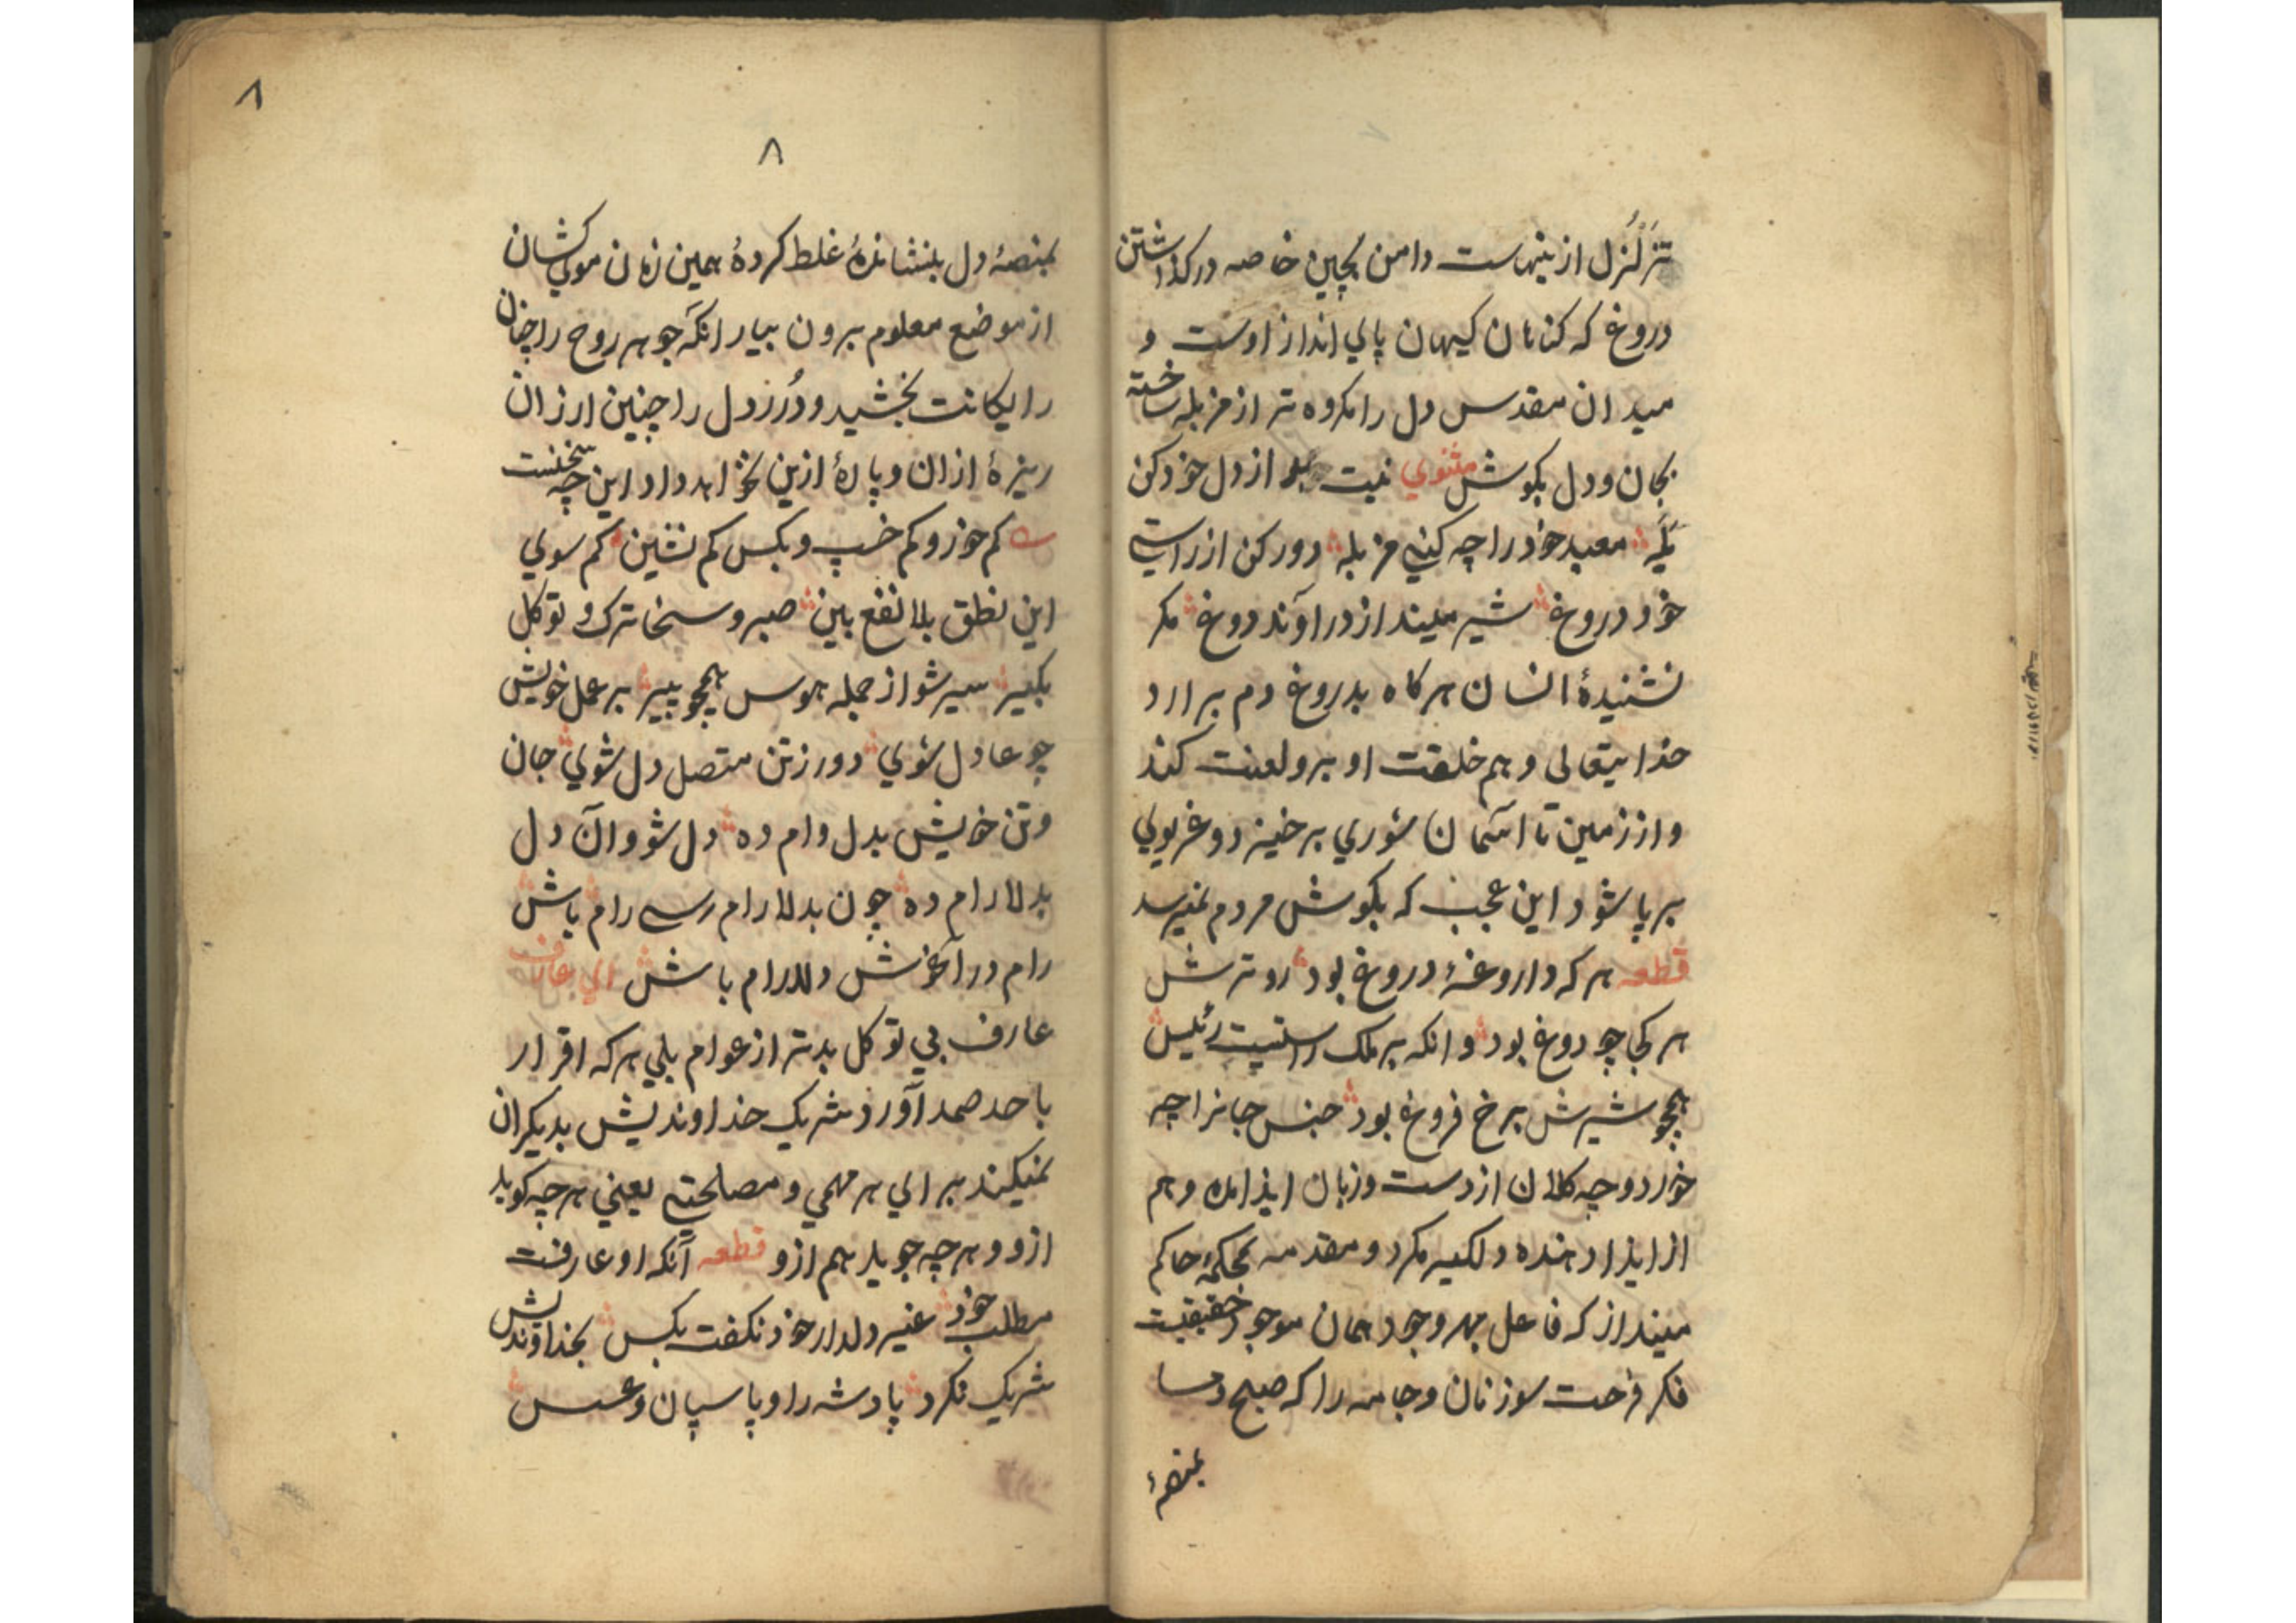 تزلزل ازینهاست دامن بچین خاصه درکذاشتن
دروغ که کنانان کیهان پالي انداز اوست و
میدان مقدس دل را مکروه تر از مزبله ساخته
بجان و دل بکوش مثنوي نیت بد از دل خود کن
یله معبد خود را چه کني مزبله دور کن از راستي
خود دروغ شیر مینداز در آوند دوغ مکر
نشنیدۀ انسان هرکاه بدروغ دم برارد
خدایتعالی و هم خلقت او برو لعنت کند
و از زمین تا آسمان شوري برخیزد و غریولي
برپا شود این عجب که بکوش مردم نمیرسد
قطعه هرکه داروغۀ دروغ بود رو ترش
هر کجا چو دوغ بود و انکه بر ملک راستیت رئیس
همچو شیرش برخ فروغ بود جنس جانرا چه
خورد و چه کلان از دست و زبان ایذا مده و هم
از ایذا دهنده دلکیر مکرد و مقدمه بمحکمۀ حاکم
مینداز که فاعل بهر وجود همان موجود حقیقیت
فکر فرحت سوز نان و جامه را که صبح و مسا
بمنصۀ
٨
٨
بمنصۀ دل بنشاندۀ غلط کردۀ همین زمان موي کشان
از موضع معلوم برون بیار انکه جوهر روح را چنان
رایکانت بخشید و دُرز دل را چنین ارزان
ریزۀ ازان و پارۀ ازین نخواهد داد این چه سخنست
کم خور و کم خسپ و بکس کم نشین کم سوي
این نطق بلا نفع بین صبر و سخا ترک و توکل
بکیر سیر شو از جمله هوس همچو پیر بر عمل خویش
چو عادل شوي دور ز تن متصل دل شوي جان
و تن خویش بدل وام ده دل شو و آن دل
بدلارام ده چون بدلارام رسي رام باش
رام در آغوش دلارام باش اي عارف
عارف بي توکل بدتر از عوام بلي هرکه اقرار
باحد صمد آورد شریک خداوندیش بدیکران
نمیکند برالي هر مهمي و مصلحتي یعني هرچه کوید
ازو و هرچه جوید هم ازو قطعه آنکه او عارفست
مطلب خود غیر دلدار خود نکفت بکس بخداوندیش
شریک نکرد پادشه را و پاسپان و عسس